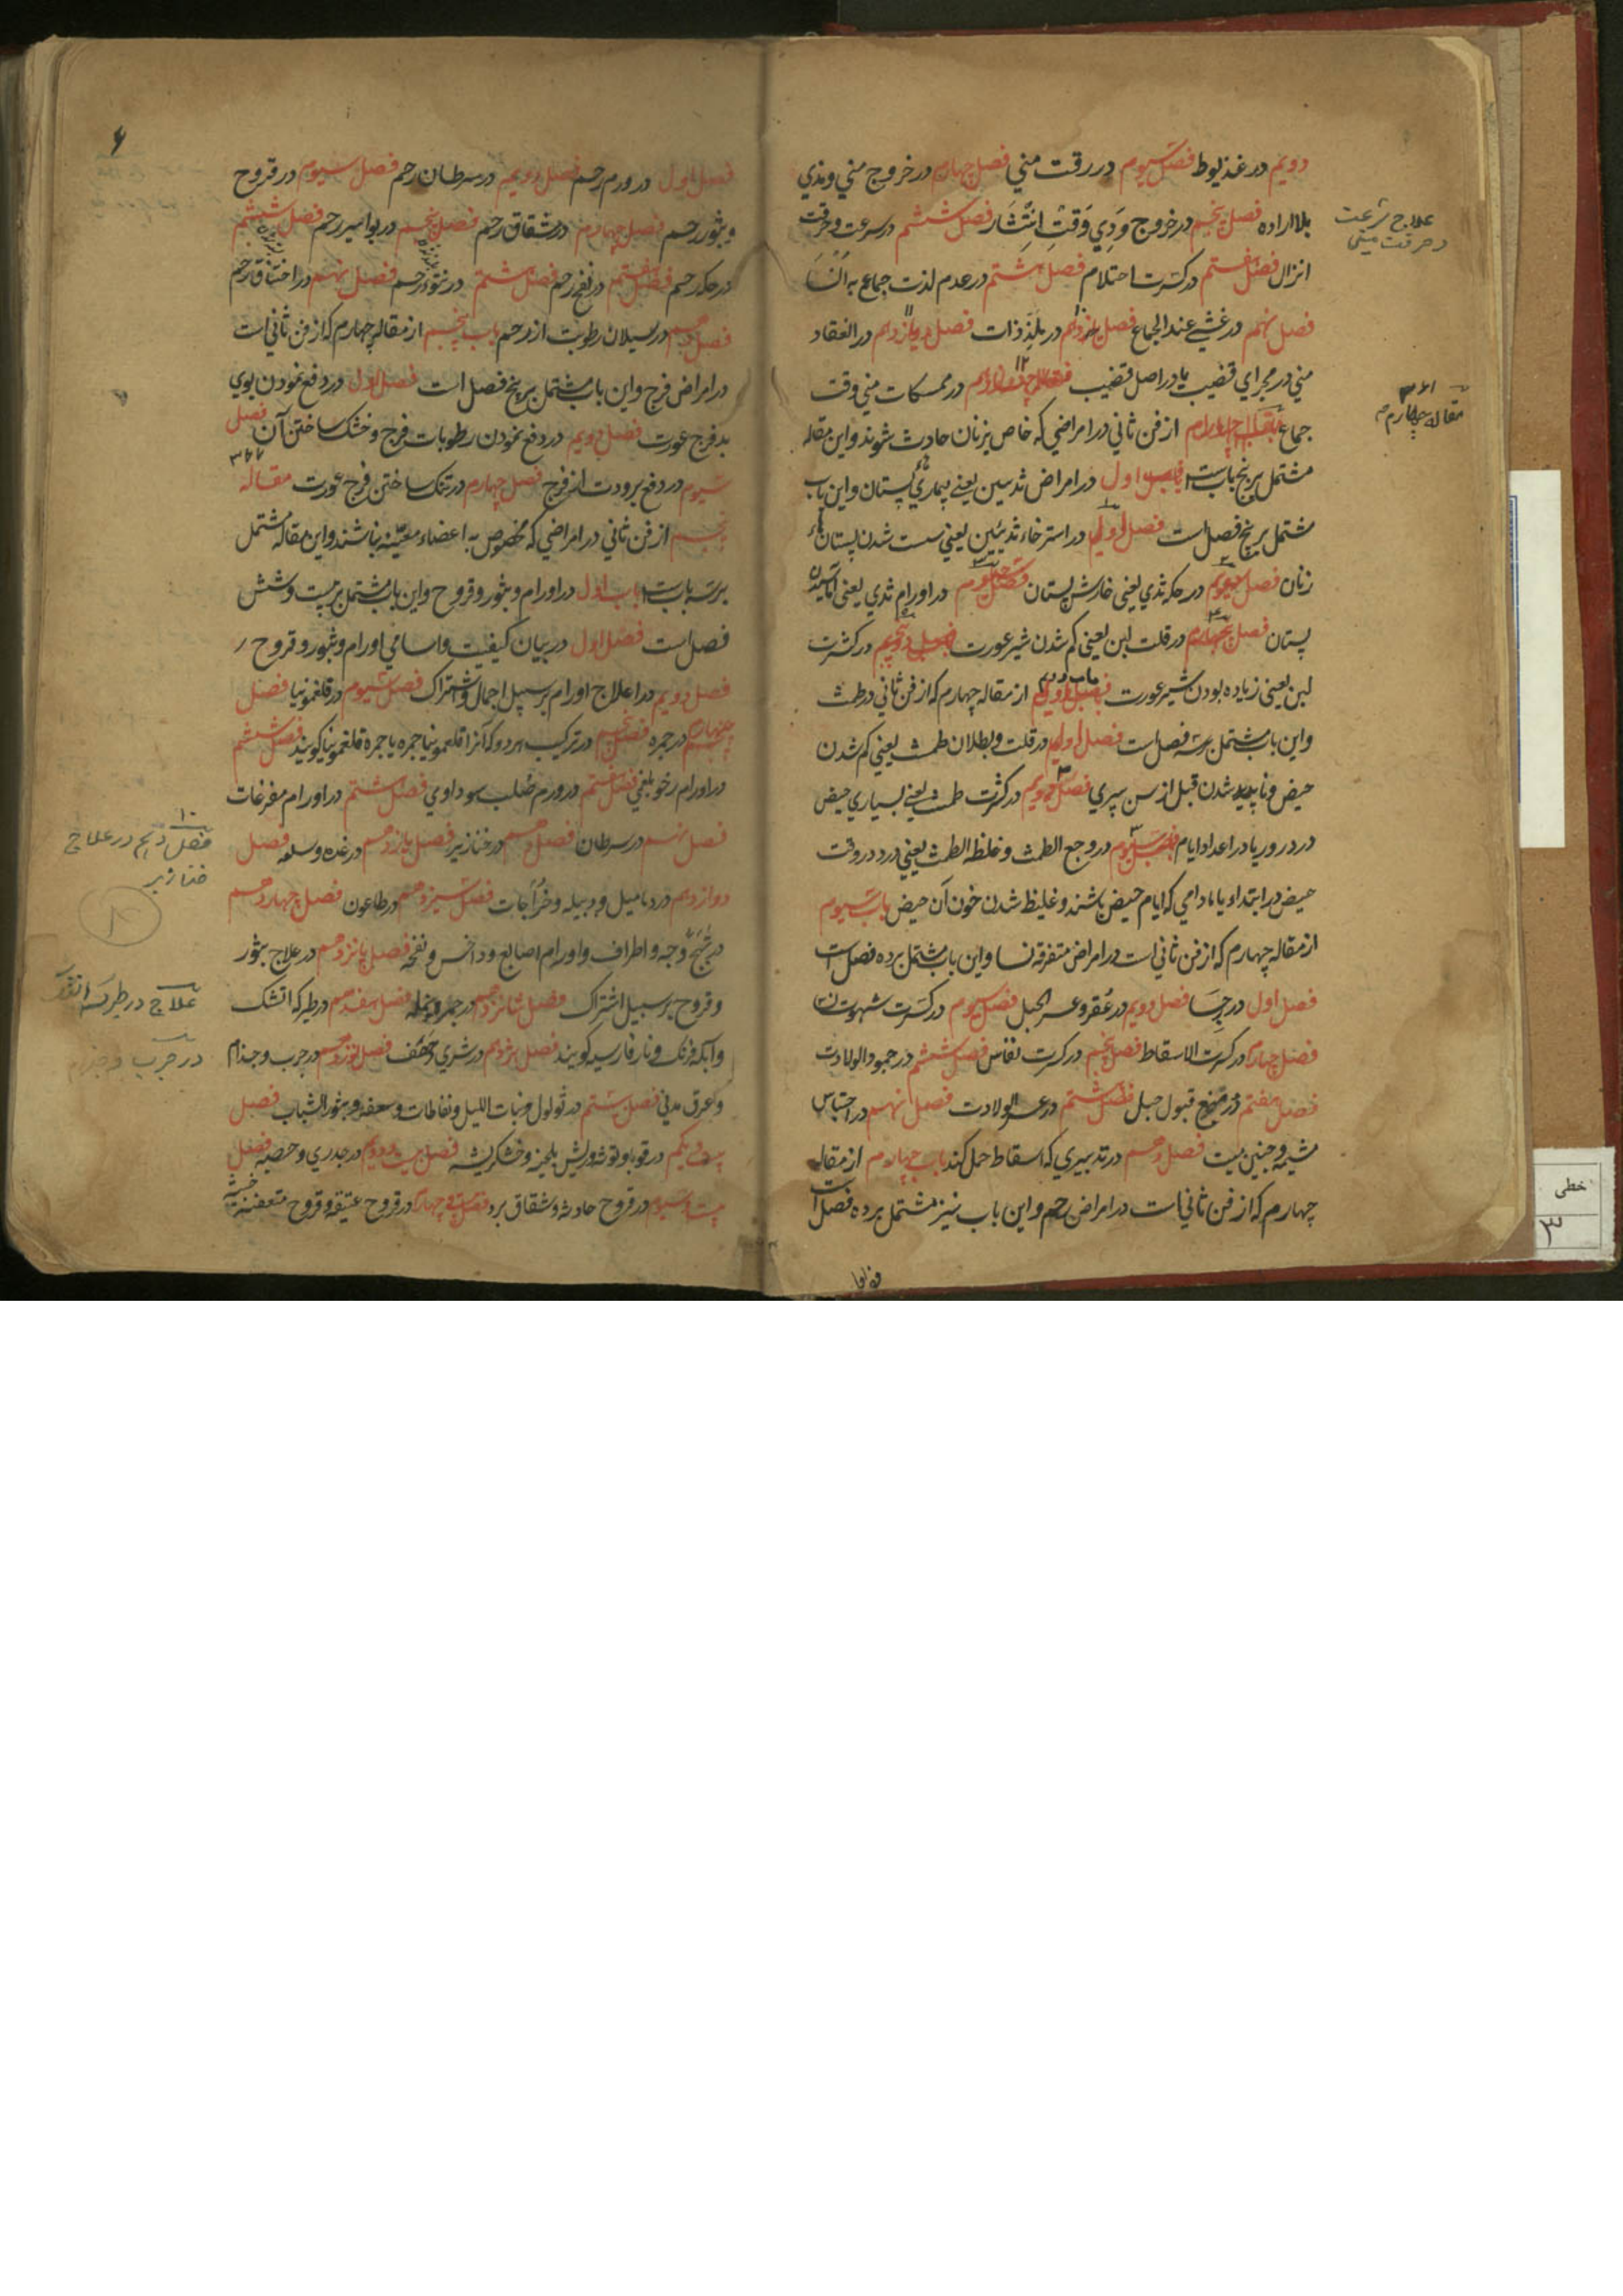 دویم در غذیوط فصل سیوم در رقت مني فصل چهارم در خروج مني و مذي
بلااراده فصل پنجم در خروج وَدِي وَقتِ اِنتِشَار فصل ششم در سرعت و حرقت
انزال فصل هفتم در کثرت احتلام فصل هشتم در عدم لذت جماع
فصل نهم در غشي عند الجماع فصل دهم در ملذذات فصل یازدهم در انعقاد
مني در مجراي قضیب یا در اصل قضیب در ممسکات مني وقت
جماع مقاله چهارم از فن ثاني در امراضي که خاص بزنان حادث شوند و این مقاله
مشتمل بر پنج بابست باب اول در امراض ثدیین یعنی بیماري پستان و این باب
مشتمل بر پنج فصل است فصل اول در استرخاء ثدیین یعني سست شدن پستان
زنان فصل دویم در حکه ثدي یعنی خارش پستان فصل سیوم در اورام ثدي یعنی آماسیدن
پستان فصل چهارم در قلت لبن یعنی کم شدن شیر عورت فصل پنجم در کثرت
لبن یعنی زیاده بودن شیر عورت باب دویم از مقاله چهارم که از فن ثاني در طمث
و این باب مشتمل بر سه فصل است فصل اول در قلت و بطلان طمث یعني کم شدن
حیض و ناپدید شدن قبل از سن پیري فصل دویم در کثرت طمث یعنے بسیاري حیض
در دور یا در اعداد ایام فصل سیوم در وجع الطمث و غلظ الطمث یعني درد در وقت
حیض در ابتداء یا مادامي که ایام حیض باشند و غلیظ شدن خون آن حیض باب سیوم
از مقاله چهارم که از فن ثاني است در امراض متفرقه نسا و این باب مشتمل بر ده فصل است
فصل اول در رجا فصل دویم در عُقر و عسر الحبل فصل سیوم در کثرت شهوت زن
فصل چهارم در کثرت الاسقاط فصل پنجم در کثرت نفاس فصل ششم در جمود الولادت
فصل هفتم در منع قبول حبل فصل هشتم در عسر الولادت فصل نهم در احتباس
مشیمه و جنین میت فصل دهم در تدبیري که اسقاط حمل کند باب چهارم از مقاله
چهارم که از فن ثاني است در امراض رحم و این باب نیز مشتمل بر ده فصل است
علاج سرعت
و حرقت مني
۳۶۱
مقاله چهارم
فصل اول در ورم رحم فصل دویم در سرطان رحم فصل سیوم در قروح
و بثور رحم فصل چهارم در شقاق رحم فصل پنجم در بواسیر رحم فصل ششم
در حکه رحم فصل هفتم در نفخ رحم فصل هشتم در نتوء رحم فصل نهم در اختناق رحم
فصل دهم در سیلان رطوبت از رحم باب پنجم از مقاله چهارم که از فن ثاني است
در امراض فرج و این باب مشتمل بر پنج فصل است فصل اول در دفع نمودن بوي
بد فرج عورت فصل دویم در دفع نمودن رطوبات فرج و خشک ساختن آن فصل
سیوم در دفع برودت از فرج فصل چهارم در تنک ساختن فرج عورت مقاله
پنجم از فن ثاني در امراضي که مخصوص به اعضاء معیّنه نباشند و این مقاله مشتمل
بر سه بابست باب اول در اورام و بثور و قروح و این باب مشتمل بر بیست و شش
فصل است فصل اول در بیان کیفیت و اسامي اورام و بثور و قروح
فصل دویم در اعلاج اورام بر سبیل اجمال و اشتراک فصل سیوم در فلغمونیا فصل
چهارم در جمره فصل پنجم در ترکیب هر دو که آنرا فلغمونیا جمره یا جمره فلغمونیا کویند فصل ششم
در اورام رخو بلغمي فصل هفتم در ورم صُلب سوداوي فصل هشتم در اورام مفرغات
فصل نهم در سرطان فصل دهم در خنازیر فصل یازدهم در غده و سلعه فصل
دوازدهم در دمامیل و دبیله و خُرّاجات فصل سیزدهم در طاعون فصل چهاردهم
در تهبّج وجه و اطراف و اورام اصابع و داخس و نفخه فصل پانزدهم در علاج بثور
و قروح بر سبیل اشتراک فصل شانزدهم در جمره و نمله فصل هفدهم در طیرکه اتشک
و آبله فرنک و نار فارسیه کویند فصل هژدهم در شري و حَصَف فصل نوزدهم در جرب و جذام
و عرق مدني فصل بیستم در ثولول و بنات اللیل و نفاطات و سعفه و بثور الشباب فصل
بیست و یکم در قوبا و توثه و ریش بلخیه و خشکریشه فصل بیست و دویم در جدري و حصبه فصل
بیست و سیوم در قروح حادثه و شقاق برد فصل بیست و چهارم در قروح عتیقه و قروح متعفنه خبیثه
۳۷۷
۱۰
فصل دهم در علاج
خنازیر
در جرب و جذام
خطی
۳